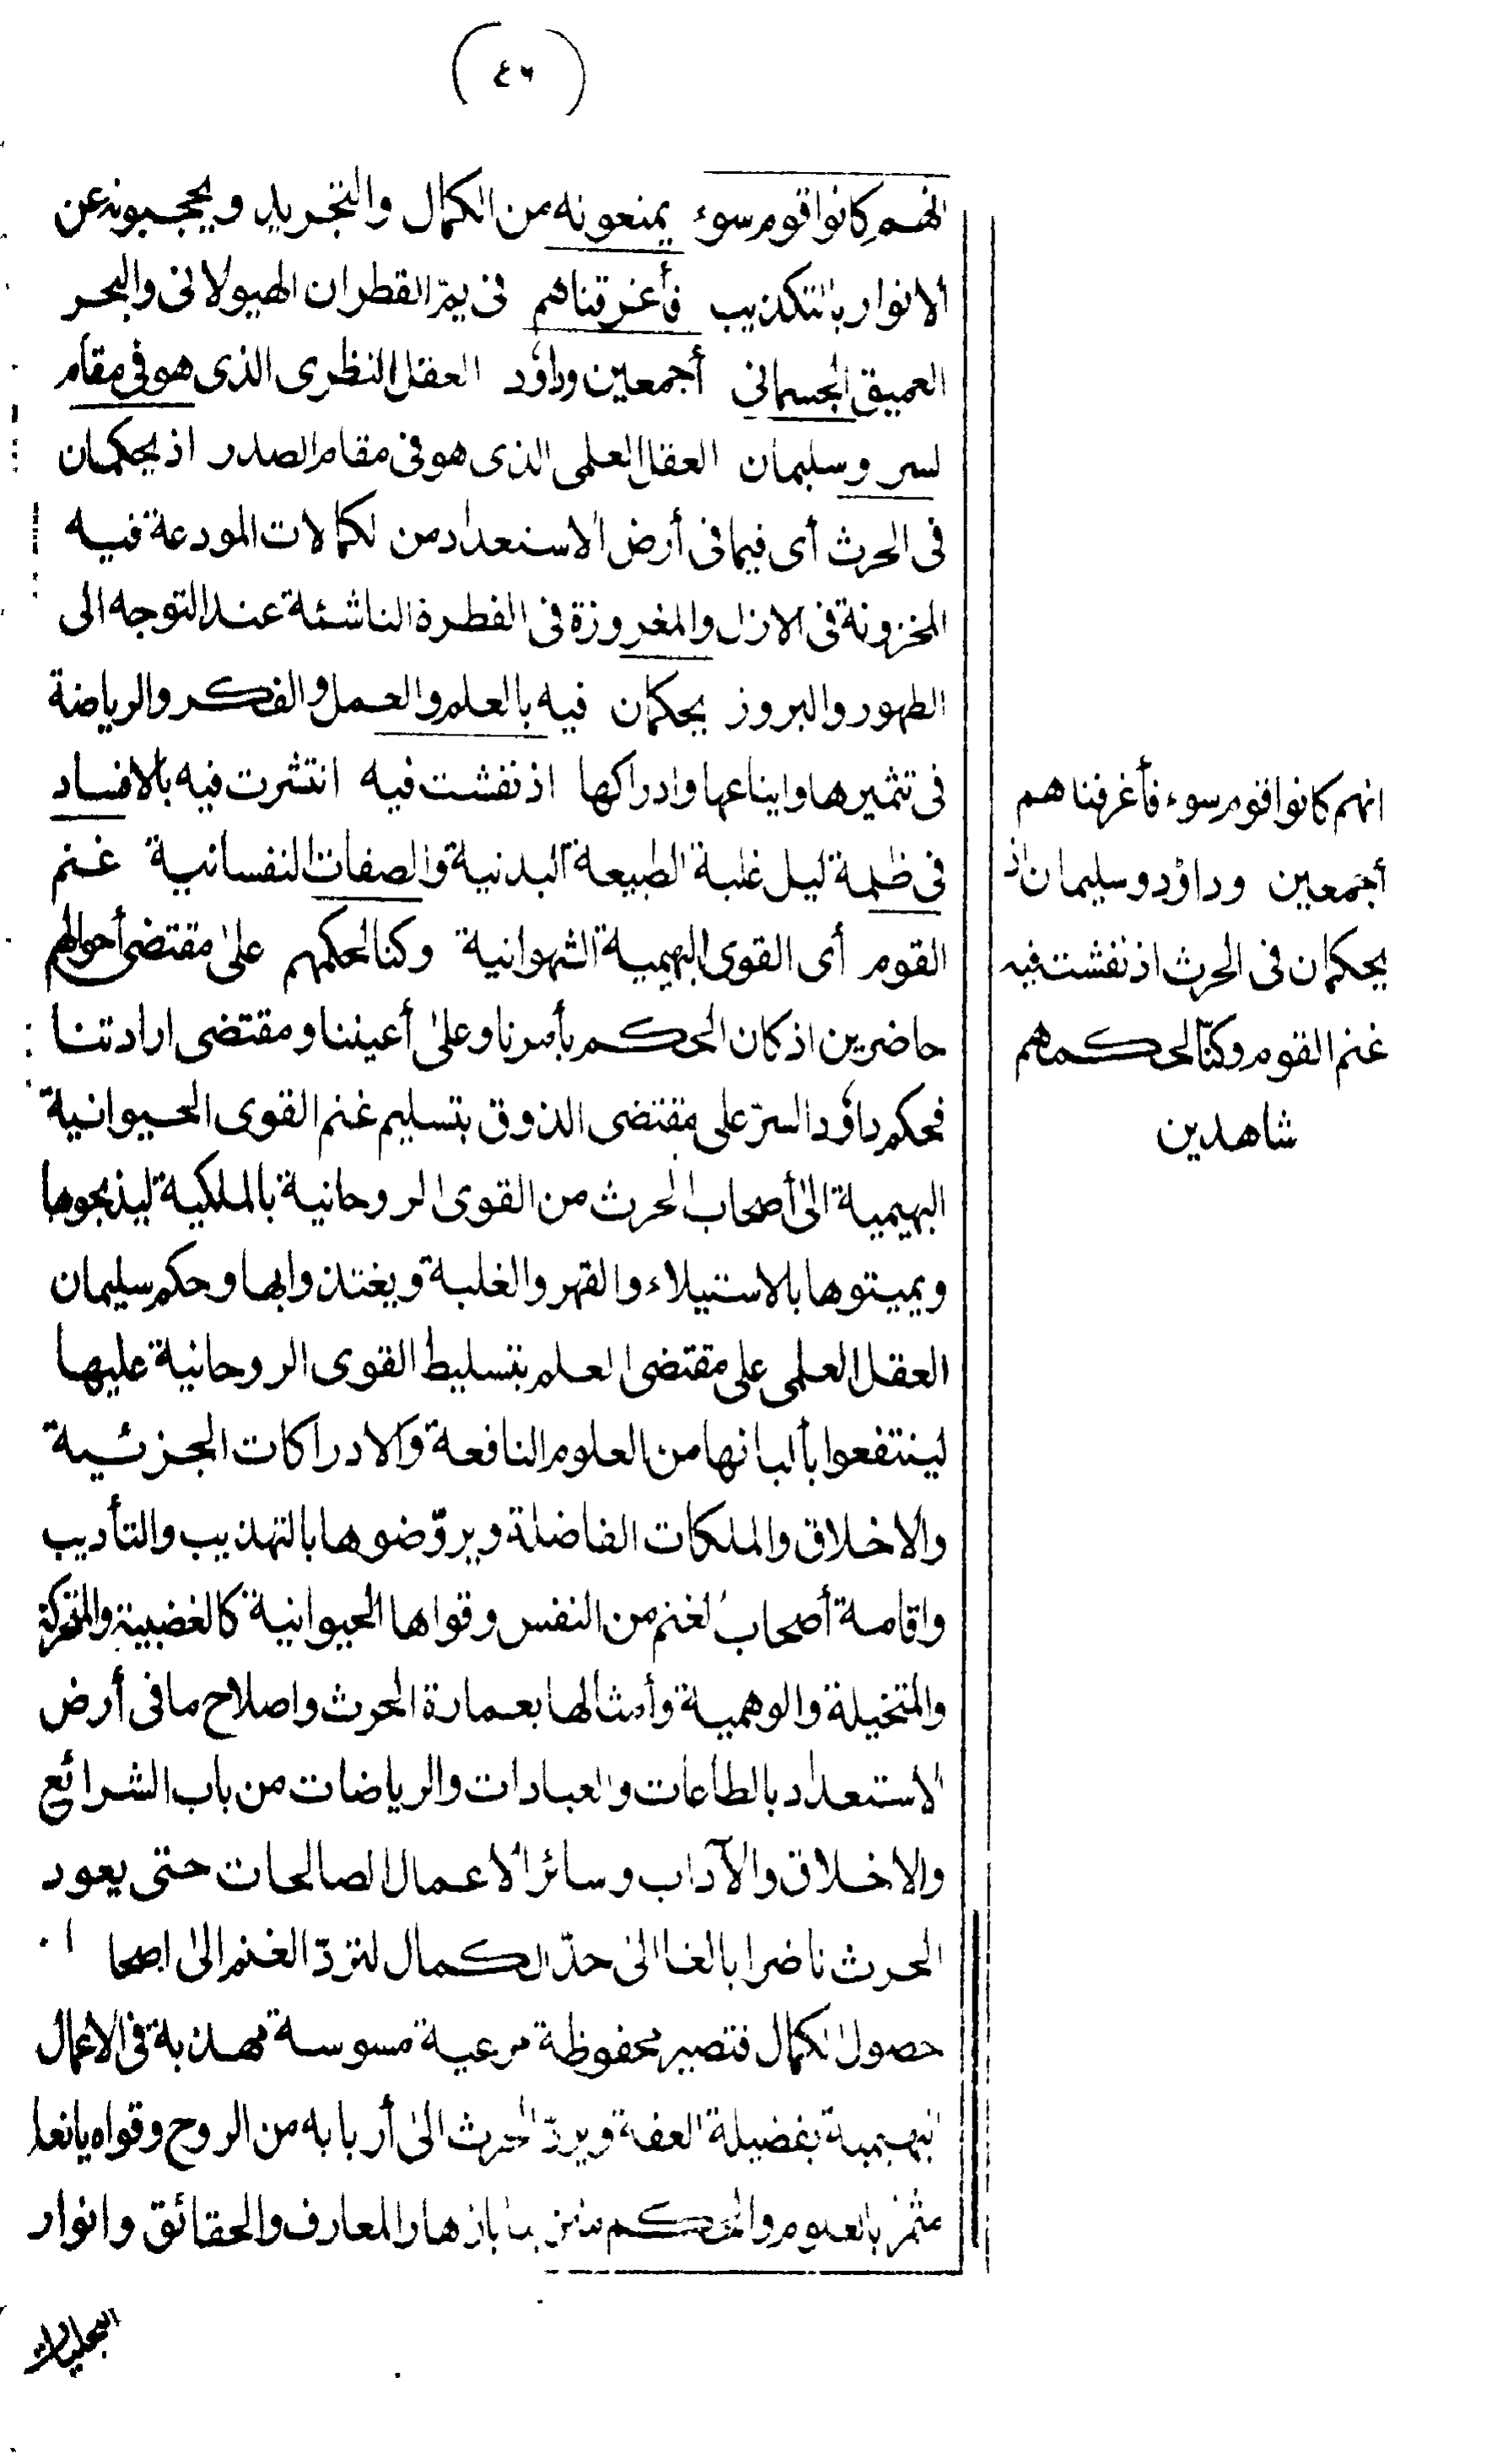 (٤٦)
انهم كانوا قوم سوء يمنعونه من الكمال والتجريد ويحجبونه عن
الانوار بالتكذيب فأغرقناهم فى يمّ القطران الهيولانى والبحر
العميق الجسمانى أجمعين وداوٗد العقل النظرى الذى هو فى مقام
لسر وسليمان العقل العلمى الذى هو فى مقام الصدر اذ يحكمان
فى الحرث أى فيما فى أرض الاستعداد من لكمالات المودعة فيه
المخزونة فى الازل والمغروزة فى الفطرة الناشئة عند التوجه الى
الظهور والبروز يحكمان فيه بالعلم والعمل والفكر والرياضة
فى تثميرها وايناعها وادراكها اذ نفشت فيه انتشرت فيه بالافساد
فى ظلمة ليل غلبة الطبيعة البدنية والصفات النفسانية غنم
القوم أى القوى البهيمية الشهوانية وكنا لحكمهم على مقتضى أحوالهم
حاضرين اذ كان الحكم بأمرنا وعلى أعيننا ومقتضى ارادتنا
فحكم داوٗد السرّ على مقتضى الذوق بتسليم غنم القوى الحيوانية
البهيمية الى أصحاب الحرث من القوى الروحانية بالملكية ليذبحوها
ويميتوها بالاستيلاء والقهر والغلبة ويغتذوا بها وحكم سليمان
العقل العلمى على مقتضى العلم بتسليط القوى الروحانية عليها
لينتفعوا بألبانها من العلوم النافعة والادراكات الجزئية
والاخلاق والملكات الفاضلة ويروّضوها بالتهذيب والتأديب
واقامة أصحاب لغنم من النفس وقواها الحيوانية كالغضبية والمتحركة
والمتخيلة والوهمية وأمثالها بعمارة الحرث واصلاح ما فى أرض
الاستعداد بالطاعات والعبادات والرياضات من باب الشرائع
والاخلاق والآداب وسائر الاعمال الصالحات حتى يعود
الحرث ناضرا بالغا الى حدّ الكمال لتردّ الغنم الى اصحا
حصول الكمال فتصير محفوظة مرعية مسوسة مهذبة فى الاعمال
البهيمية بفضيلة العفة ويردّ الحرث الى أربابه من الروح وقواه يانعا
مثمرا بالعلوم والحكم بازهار المعارف والحقائق وانوار
انهم كانوا قوم سوء فأغرقناهم
أجمعين وداوٗد وسليمان اذ
يحكمان فى الحرث اذ نفشت فيه
غنم القوم وكنّا لحكمهم
شاهدين